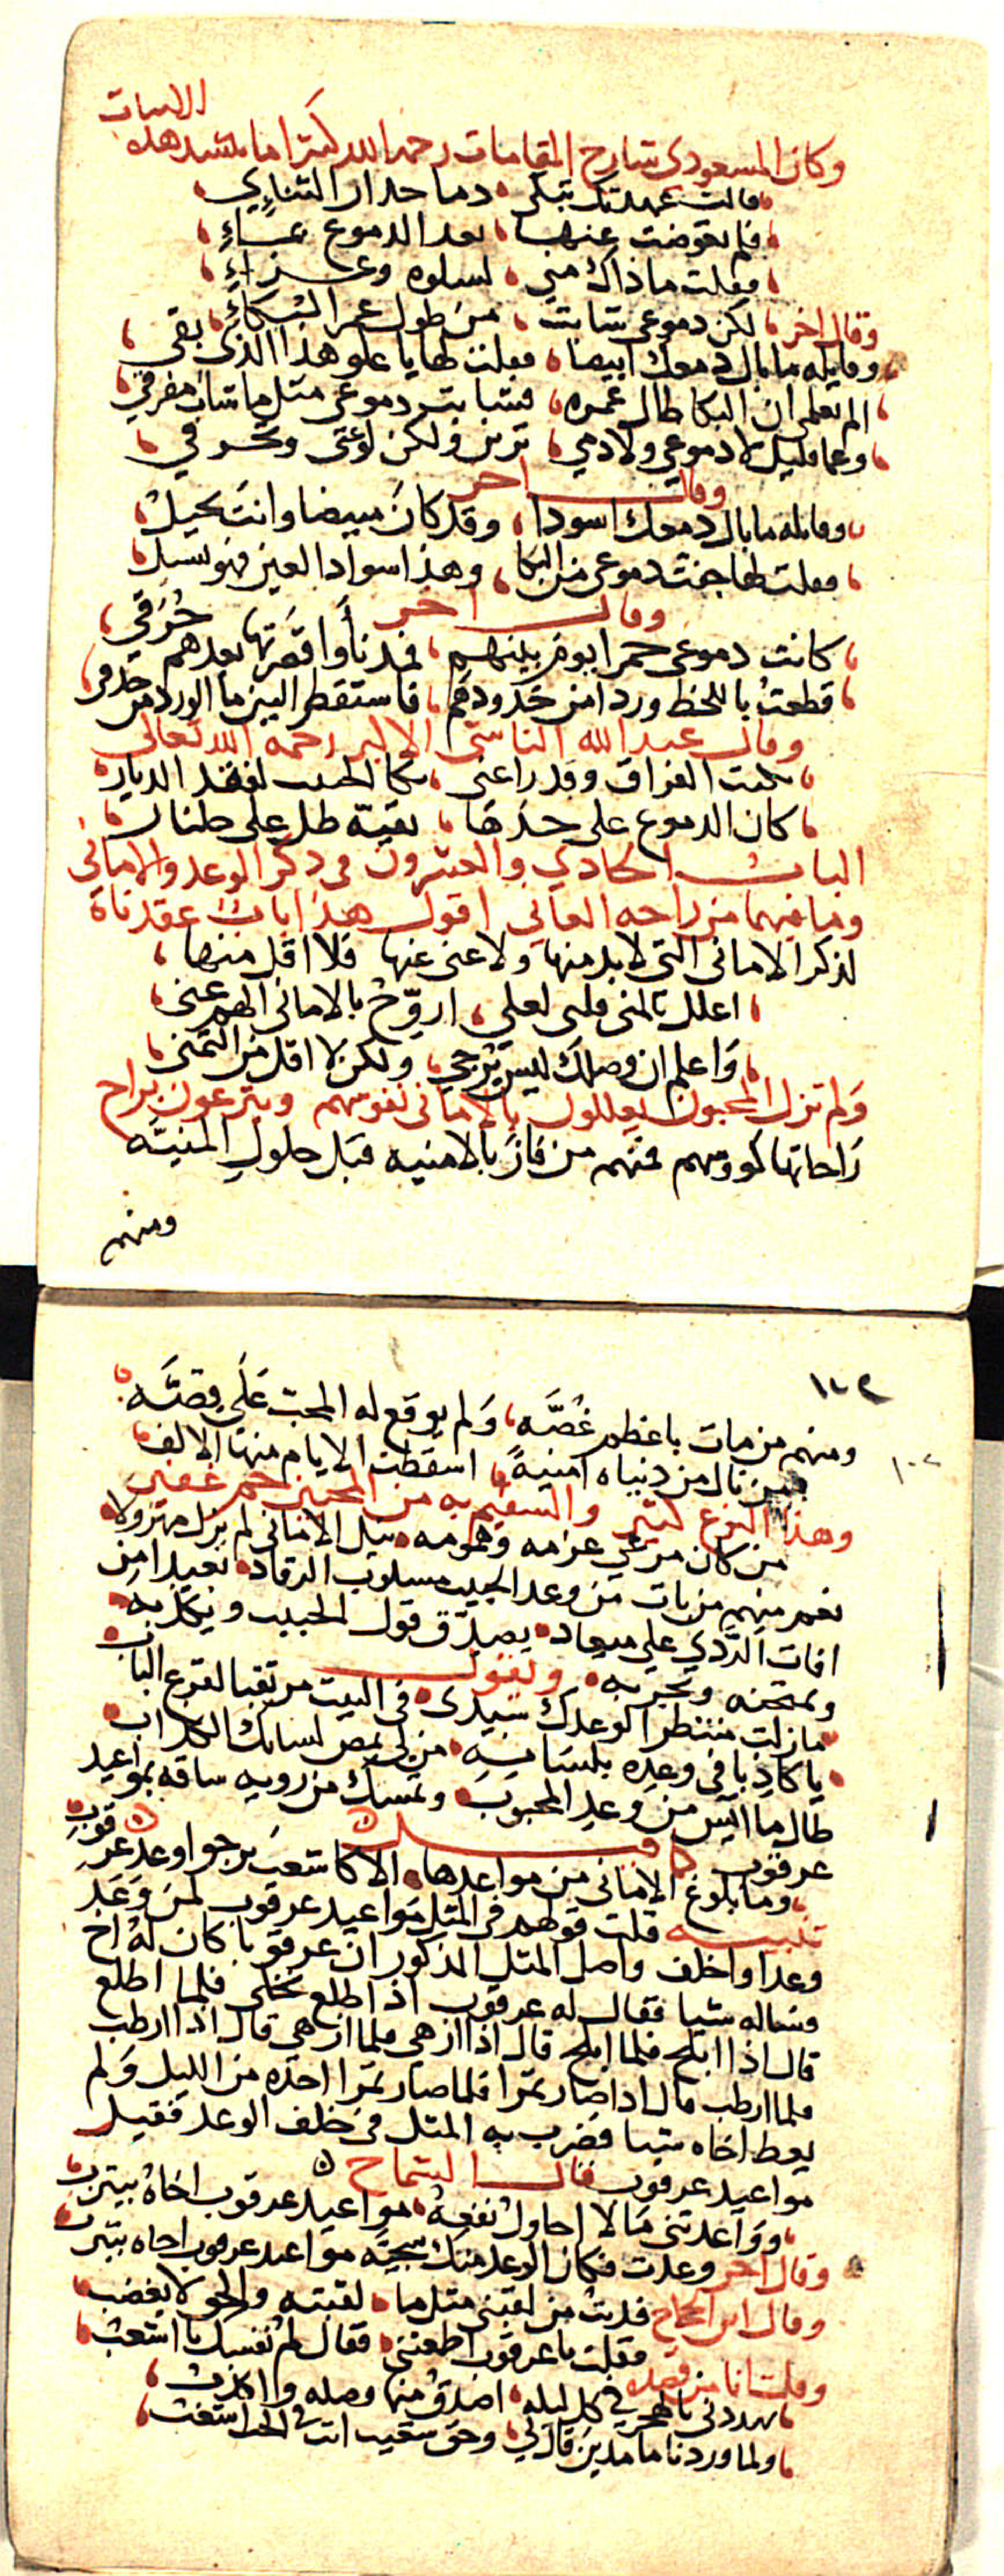 الابيات
وكان المسعودي شارح المقامات رحمه الله كثيرا ما ينشد هذه
قالت عهدتك تبكي دما حذار التنائي
فلم تعوضت عنها بعد الدموع بماء
فقلت ما ذاك مني لسلوة وعزاء
وقال اخر لكن دموعي شابت من طول عمر البكاء
وقايلة ما بال دمعك ابيضا فقلت لها يا علو هذا الذي بقي
الم تعلمي ان البكا طال عمره فشابت دموعي مثل ما شاب مفرقي
وعما قليل لا دموعي ولا دمي ترين ولكن لوعتي وتحرقي
وقال اخر
وقايلة ما بال دمعك اسودا وقد كان مبيضا وانت نحيل
فقلت لها جفت دموعي من البكا وهذا سواد العين فهو يسيل
وقال اخر
كانت دموعي حمرا يوم بينهم فمذ نأوا قصرتها بعدهم حرقي
قطعت باللحظ وردا من خدودهم فاستقطر البين ما الورد من حدقي
وقال عبد الله الناشي الاكبر رحمه الله تعالى
بكت الفراق وقد راعني بكا الحبيب لفقد الديار
كان الدموع على خدها بقية طل على جلنار
الباب الحادي والعشرون في ذكر الوعد والاماني
وما فيهما من راحة العاني اقول هذا باب عقدناه
لذكر الاماني التي لا بد منها ولا غنى عنها فلا اقل منها
اعلل بالمنى قلبي لعلي اروح بالاماني الهم عني
واعلم ان وصلك ليس يرجي ولكن لا اقل من التمني
ولم تزل المحبون يعللون بالاماني نفوسهم ويترعون براح
راحاتها كووسهم فمنهم من فاز بالامنية قبل حلول المنية
ومنهم
١٠٢
ومنهم من مات باعظم غصة ولم يوقع له المحب على قصة
من نال من دنياه امنية اسقطت الايام منها الالف
وهذا النوع كثير والسقيم به من المحبين جم غفير
من كان مرعي عزمه وهمومه نيل الاماني لم يزل مهزولا
نعم منهم من بات من وعد الحبيب مسلوب الرقاد بعيدا من
افات الردي على ميعاد يصدق قول الحبيب ويكذبه
ويمتحنه ويجربه ويقول
ما زلت منتظرا لوعدك سيدى في البيت مرتقبا لقرع الباب
يا كاذبا في وعده بلسانه من لي بمص لسانك الكذاب
طال ما ايس من وعد المحبوب وتمسك من رويه ساقه بمواعيد
عرقوب
وما بلوغ الاماني من مواعدها الا كاشعب يرجوا وعد عرقوب
تنبيه قلت قولهم في المثل مواعيد عرقوب لمن وعد
وعدا واخلف واصل المثل المذكور ان عرقوبا كان له اخ
فساله شيا فقال له عرقوب اذا اطلع نخلي فلما اطلع
قال اذا ابلح فلما ابلح قال اذا ازهي فلما ازهي قال اذا ارطب
فلما ارطب قال اذا صار تمرا فلما صار تمرا اخذه من الليل ولم
يعط اخاه شيا فضرب به المثل في خلف الوعد فقيل
مواعيد عرقوب قال الشماخ
وواعدتني مالا احاول نفعه مواعيد عرقوب اخاه بيترب
وقال اخر وعدت فكان الوعد منك سجية مواعيد عرقوب اخاه بيترب
وقال ابن الحجاج فديت من لقبني مثل ما لقبته والحق لا يغضب
فقلت يا عرقوب اطعتني فقال لم نفسك يا اشعب
وقلت انا من قصيدة
يهددني بالهجر في كل ليلة اصدق منها وصله واكذب
ولما وردنا ما مدين قال لي وحق شعيب انت في الحب اشعب